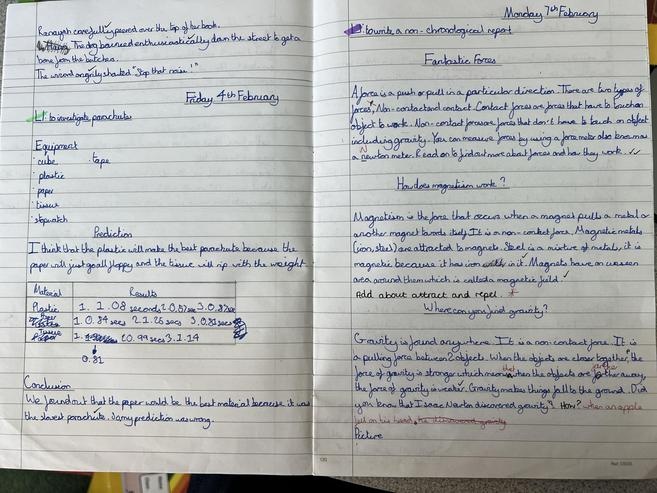 Ranayah carefully peered over the top of her book.
The dog bounced enthusiastically down the street to get a
bone from the butchers.
The wizard angrily shouted "Stop that noise!"
Friday 4th February
LI: to investigate parachutes
Equipment
· cube · tape
· plastic
· paper
· tissue
· stopwatch
Prediction
I think that the plastic will make the best parachute because the
paper will just go all floppy and the tissue will rip with the weight.
Material Results
Plastic 1. 1.08 seconds 2. 0.87sec 3. 0.87sec
Paper 1. 0.84 secs 2. 1.25 secs 3. 0.81 secs
Tissue 1. 2. 0.99 secs 3. 1.14
0.81
Conclusion
We found out that the paper would be the best material because it was
the slowest parachute. So my prediction was wrong.
Monday 7th February
LI: to write a non-chronological report
Fantastic Forces
A force is a push or pull in a particular direction. There are two types of
forces, Non-contact and contact. Contact forces are forces that have to touch an
object to work. Non-contact forces are forces that don't have to touch an object
including gravity. You can measure forces by using a force meter also known as
a newton meter. Read on to find out more about forces and how they work.
How does magnetism work?
Magnetism is the force that occurs when a magnet pulls a metal or
another magnet towards itself. It is a non-contact force. Magnetic metals
(iron, steel) are attracted to magnets. Steel is a mixture of metals, it is
magnetic because it has iron in it. Magnets have an unseen
area around them which is called a magnetic field.
Add about attract and repel. *
Where can you find gravity?
Gravity is found anywhere. It is a non-contact force. It is
a pulling force between 2 objects. When the objects are closer together, the
force of gravity is stronger which means that when the objects are further away,
the force of gravity is weaker. Gravity makes things fall to the ground. Did
you know that Isaac Newton discovered gravity? How? when an apple
fell on his head, he discovered gravity
Picture